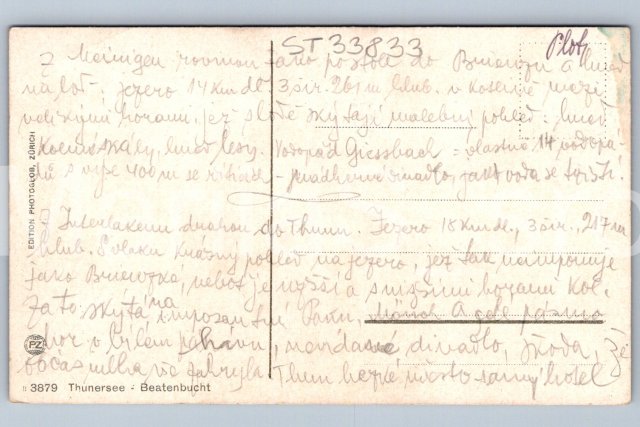 ST 33833
Z Meiningen rovnou jako postou do Brienzu a hned
na loď. Jezero 14 km dl. 3 šir. 261 m hlub. v kotlině mezi
velikými horami, jež skýtají malebný pohled: hned
skály, hned lesy. Vodopád Giessbach = vlastně 14 vodopá-
dů s výše 400 m se - nádherné divadlo, jak voda se tříští.
Z Interlakenu drahou do Thunu. Jezero 18 km dl., 3 šir., 217 m
hlub. S vlaku krásný pohled na jezero, jež tak neimponuje
jako Brienzské, neboť je užší a s nižšími horami kol.
Za to skýtá imposantní Mönch a celé pásmo
hor v bílém divadlo, škoda, že
občas mlha vše zakryla. Thun hezké město samý hotel
EDITION PHOTOGLOB, ZÜRICH
PZ
3879 Thunersee - Beatenbucht